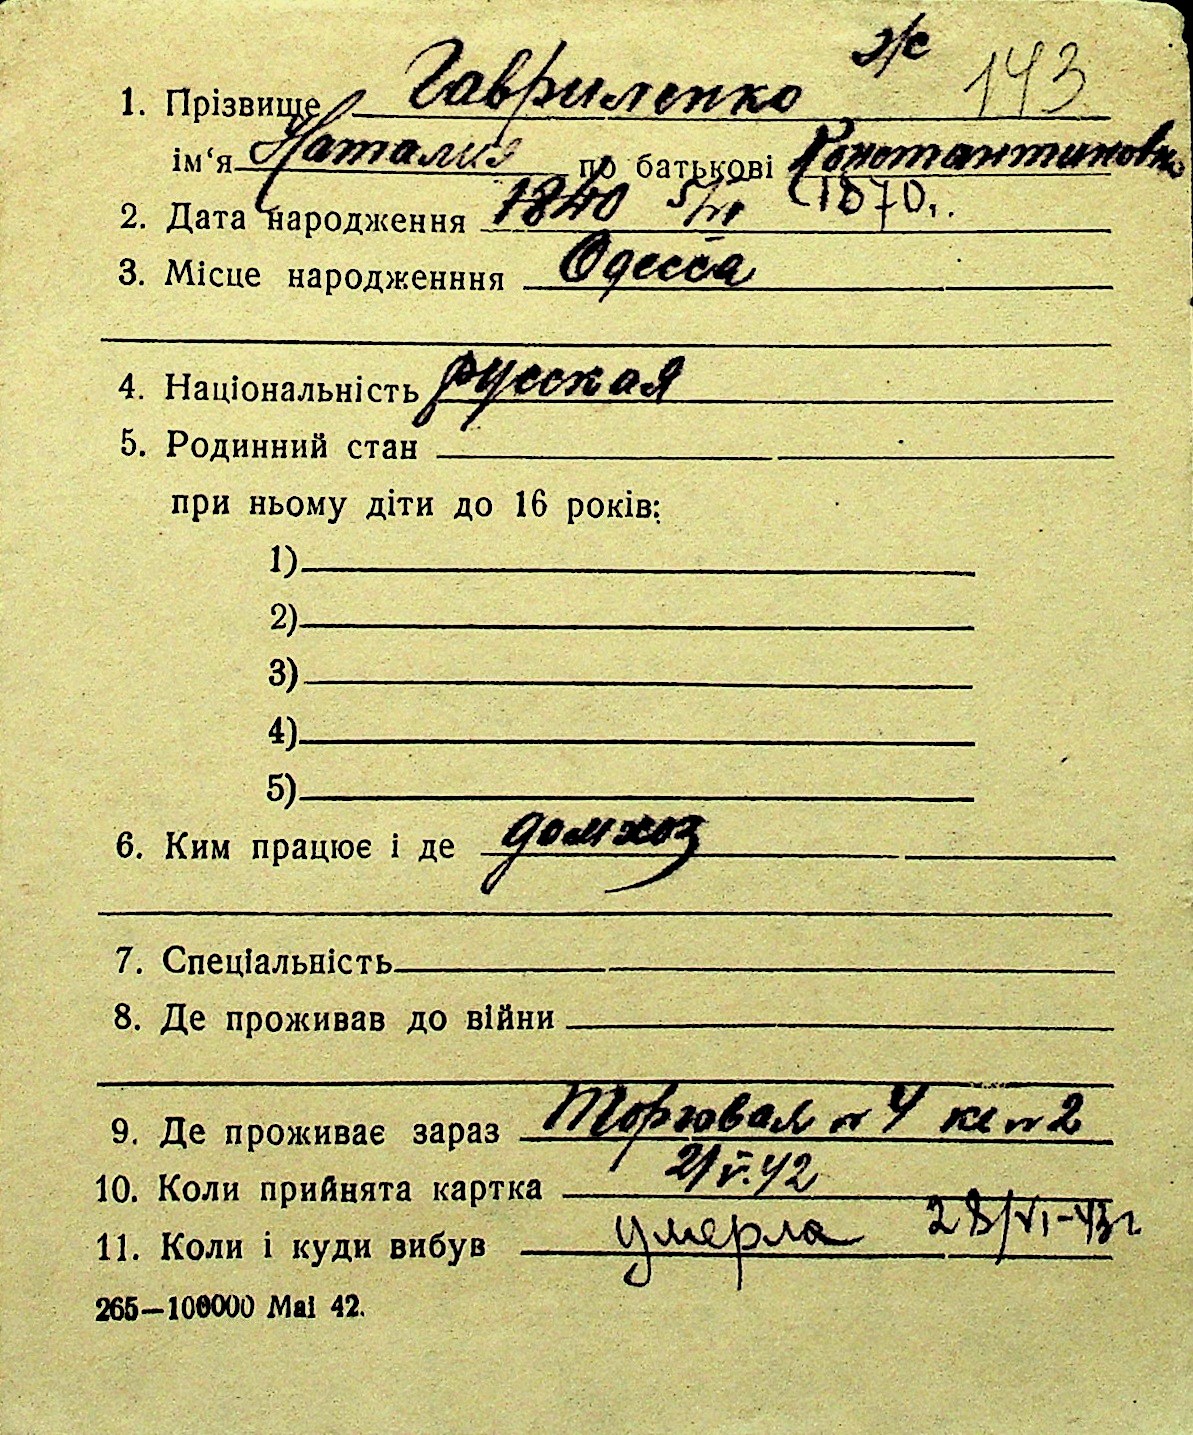 э/с 143
1. Прізвище Гавриленко
ім‘я Наталия по батькові Константиновна
2. Дата народження 1840 5/VI (1870г.
3. Місце народженння Одесса
4. Національність русская
5. Родинний стан
при ньому діти до 16 років:
1)
2)
3)
4)
5)
6. Ким працює і де домхоз
7. Спеціальність
8. Де проживав до війни
9. Де проживає зараз Торговая № 4 кв № 2
10. Коли прийнята картка 21/V.42
11. Коли і куди вибув умерла 28/VI-43г
265—100000 Mai 42.